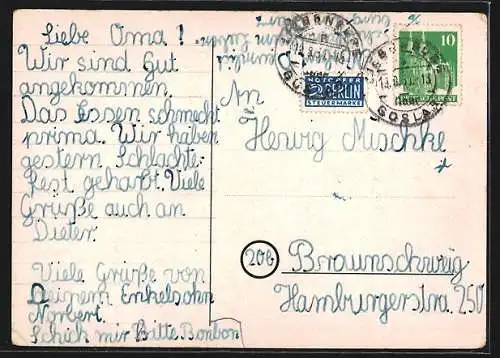 Liebe Oma!
Wir sind Gut
angekommen.
Das Essen schmeckt
prima. Wir haben
gestern Schlachte-
fest gehabt. Viele
Grüße auch an
Dieter.
Viele Grüße von
Deinem Enkelsohn
Norbert.
Schick mir Bitte Bonbon
NOTOPFER
2 BERLIN
STEUERMARKE
10
GOSLAR
An
Herwig Mischke
20b
Braunschweig
Hamburgerstra. 250